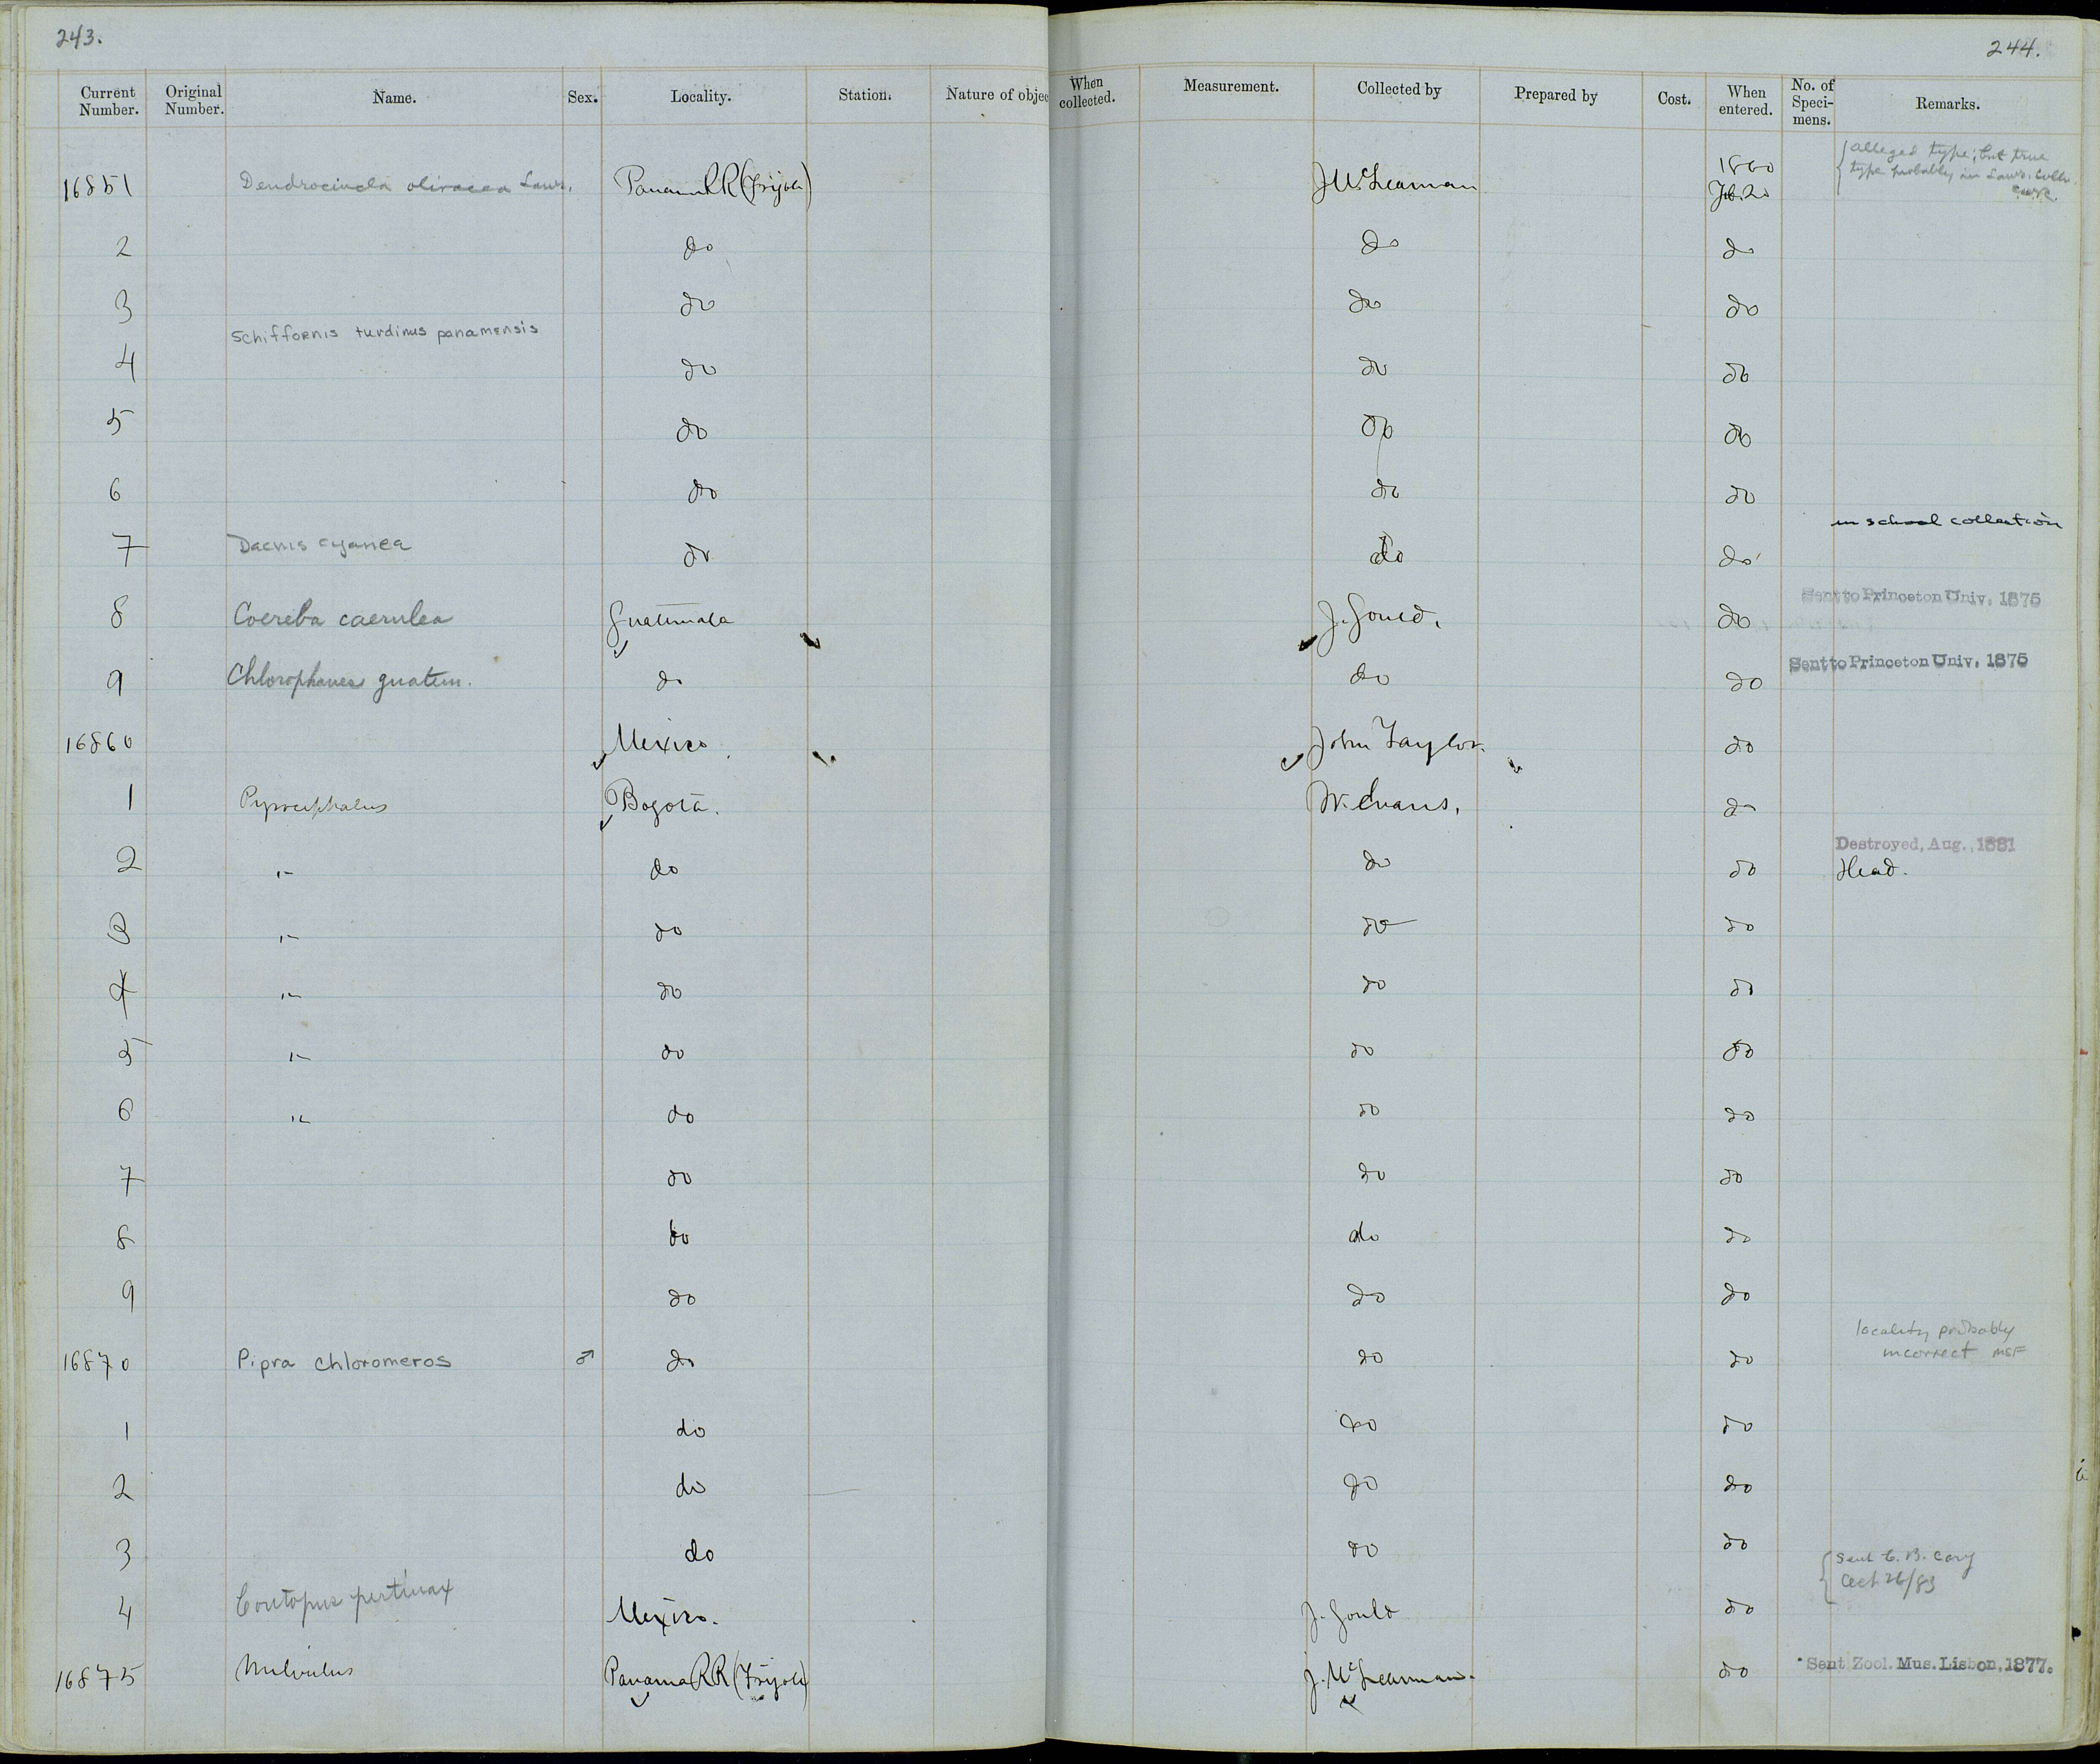 243.
244.
Current Number. Original Number. Name. Sex. Locality. Station. Nature of objec When collected. Measurement. Collected by Prepared by Cost. When entered. No. of Speci- mens. Remarks.
16851 Dendrocincla olivacea Lawr. Panama RR (Frijole) J McLeannan 1860 Feb. 20 alleged type; but true type probably in Lawr. Colln.
2 do do do
3 do do do
Schiffornis turdinus panamensis
4 do do do
5 do do do
6 do do do
in school collection
7 Dacnis cyanea do do do
8 Coereba caerulea Guatemala J. Gould. do Sent to Princeton Univ. 1875
9 Chlorophanes guatem. do do do Sent to Princeton Univ. 1875
16860 Mexico John Taylor. do
1 Pyrocephalus Bogota. W. Evans, do
2 " do do do Destroyed, Aug., 1881 Head.
3 " do do do
4 " do do do
5 " do do do
6 " do do do
7 do do do
8 do do do
9 do do do
16870 Pipra chloromeros ♂ do do do locality probably incorrect MSF
1 do do do
2 do do do
3 do do do
4 Contopus pertinax Mexico. J. Gould do Sent C. B. Cory Oct 26/83
16875 Milvulus Panama RR (Frijole) J. McLeannan. do Sent Zool. Mus. Lisbon, 1877.